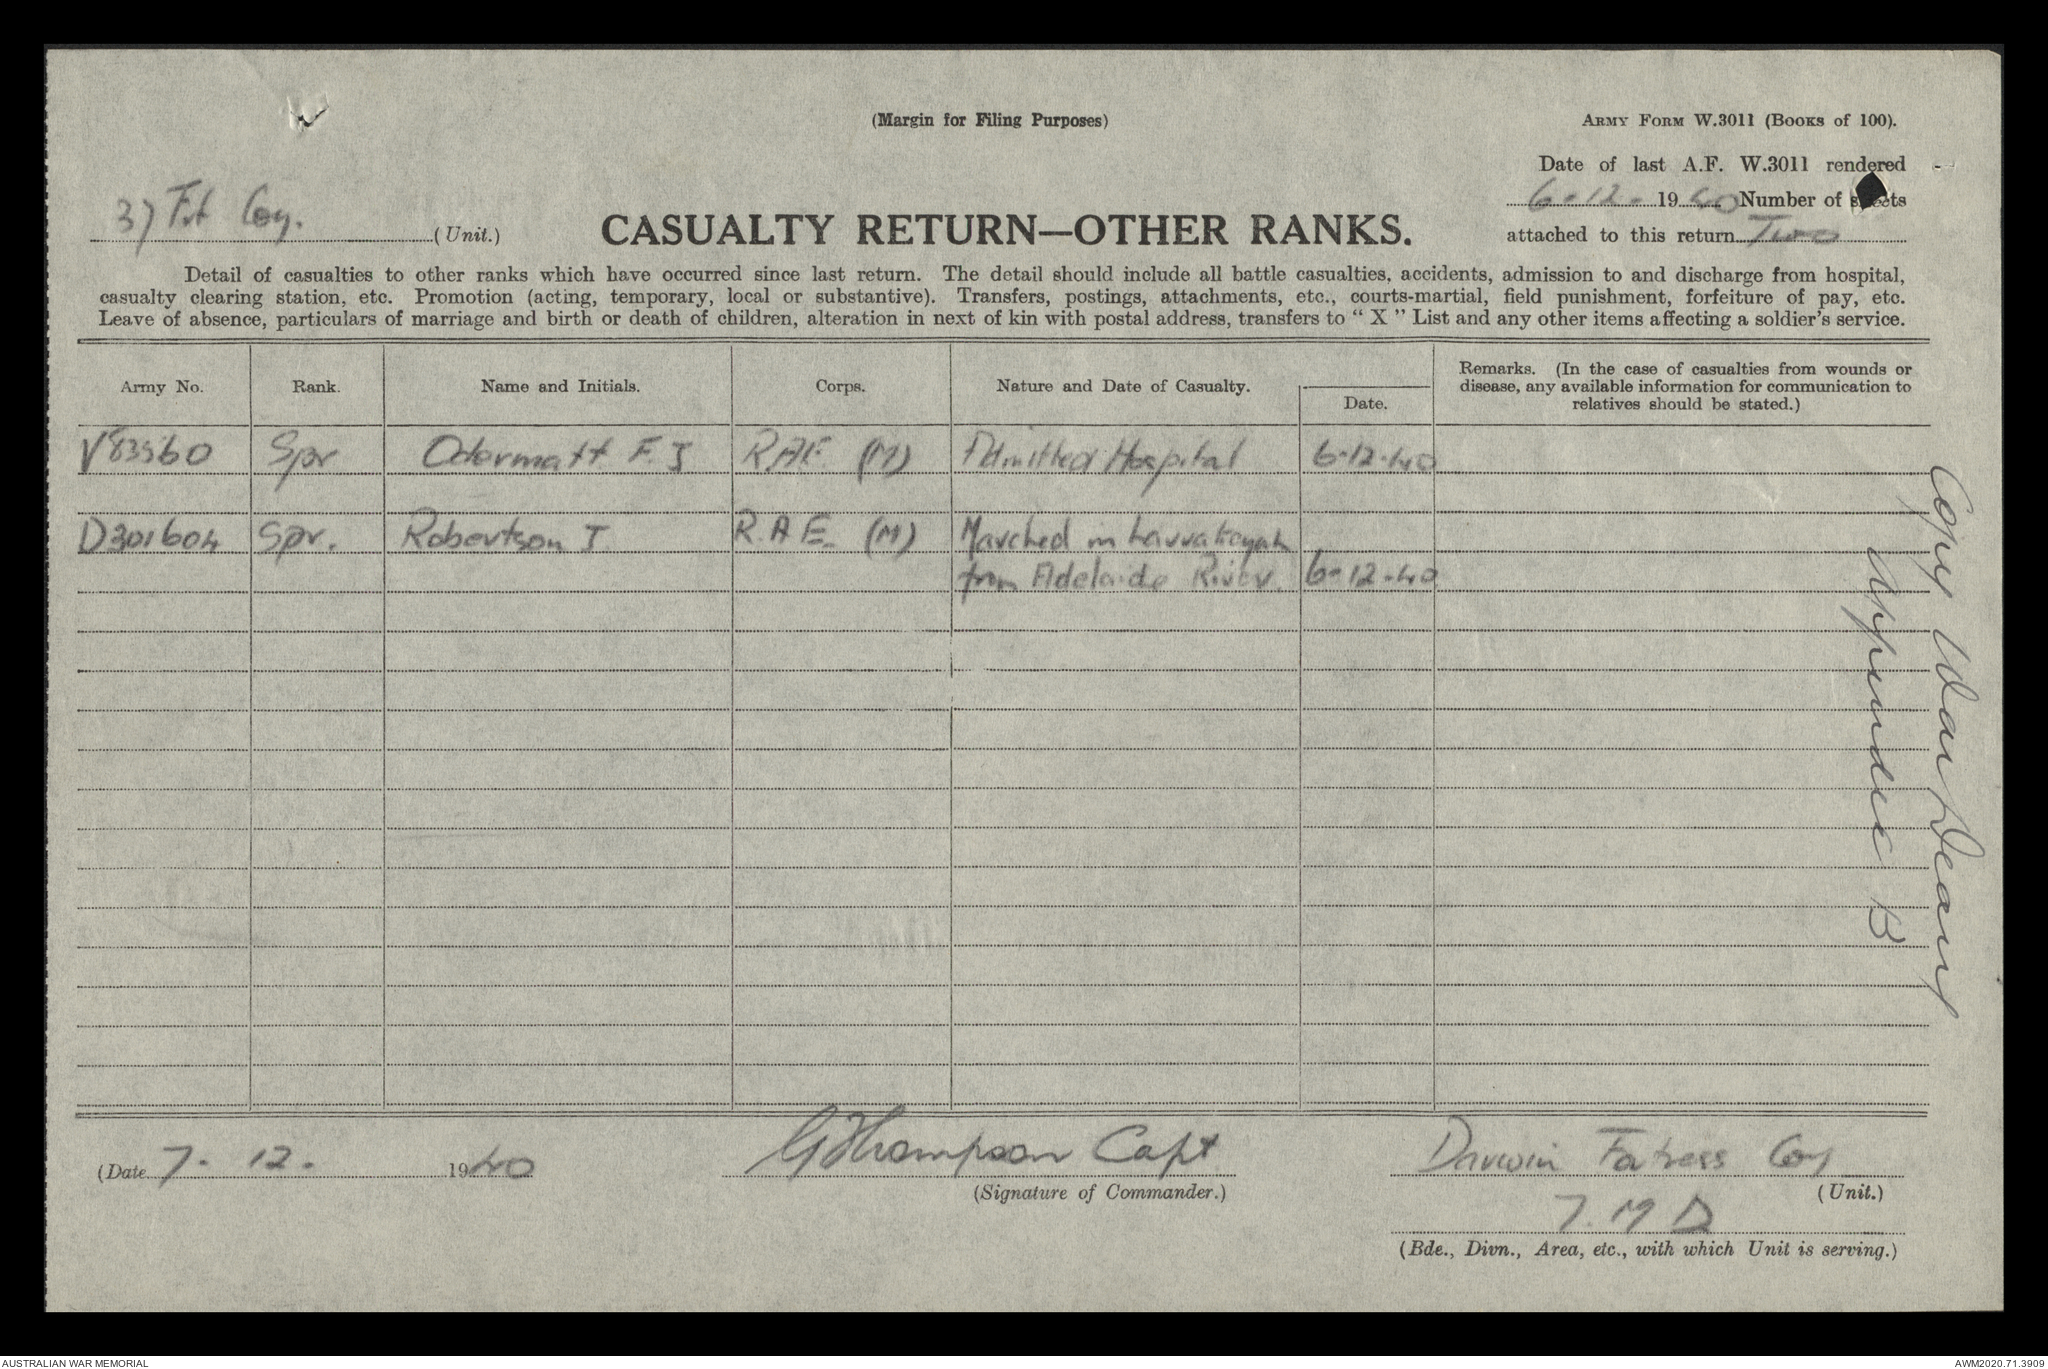 (Margin for Filing Purposes)
ARMY FORM W.3011 (BOOKS OF 100).
Date of last A.F. W.3011 rendered
6-12- 1940 Number of sheets
attached to this return Two
37 Frt Coy. (Unit.)
CASUALTY RETURN—OTHER RANKS.
Detail of casualties to other ranks which have occurred since last return. The detail should include all battle casualties, accidents, admission to and discharge from hospital,
casualty clearing station, etc. Promotion (acting, temporary, local or substantive). Transfers, postings, attachments, etc., courts-martial, field punishment, forfeiture of pay, etc.
Leave of absence, particulars of marriage and birth or death of children, alteration in next of kin with postal address, transfers to " X " List and any other items affecting a soldier's service.
Army No. Rank. Name and Initials. Corps. Nature and Date of Casualty. Date. Remarks. (In the case of casualties from wounds or
disease, any available information for communication to
relatives should be stated.)
V83560 Spr Odermatt F. J RAE (M) Admitted Hospital 6-12-40
D301604 Spr. Robertson J. R.A.E. (M) Marched in Larrakeyah
from Adelaide River. 6-12-40
Copy War Deary
Appendic B
(Date 7. 12. 1940
GThompson Capt
(Signature of Commander.)
Darwin Fortress Coy
(Unit.)
7. M D
(Bde., Divn., Area, etc., with which Unit is serving.)
AUSTRALIAN WAR MEMORIAL
AWM2020.71.3909